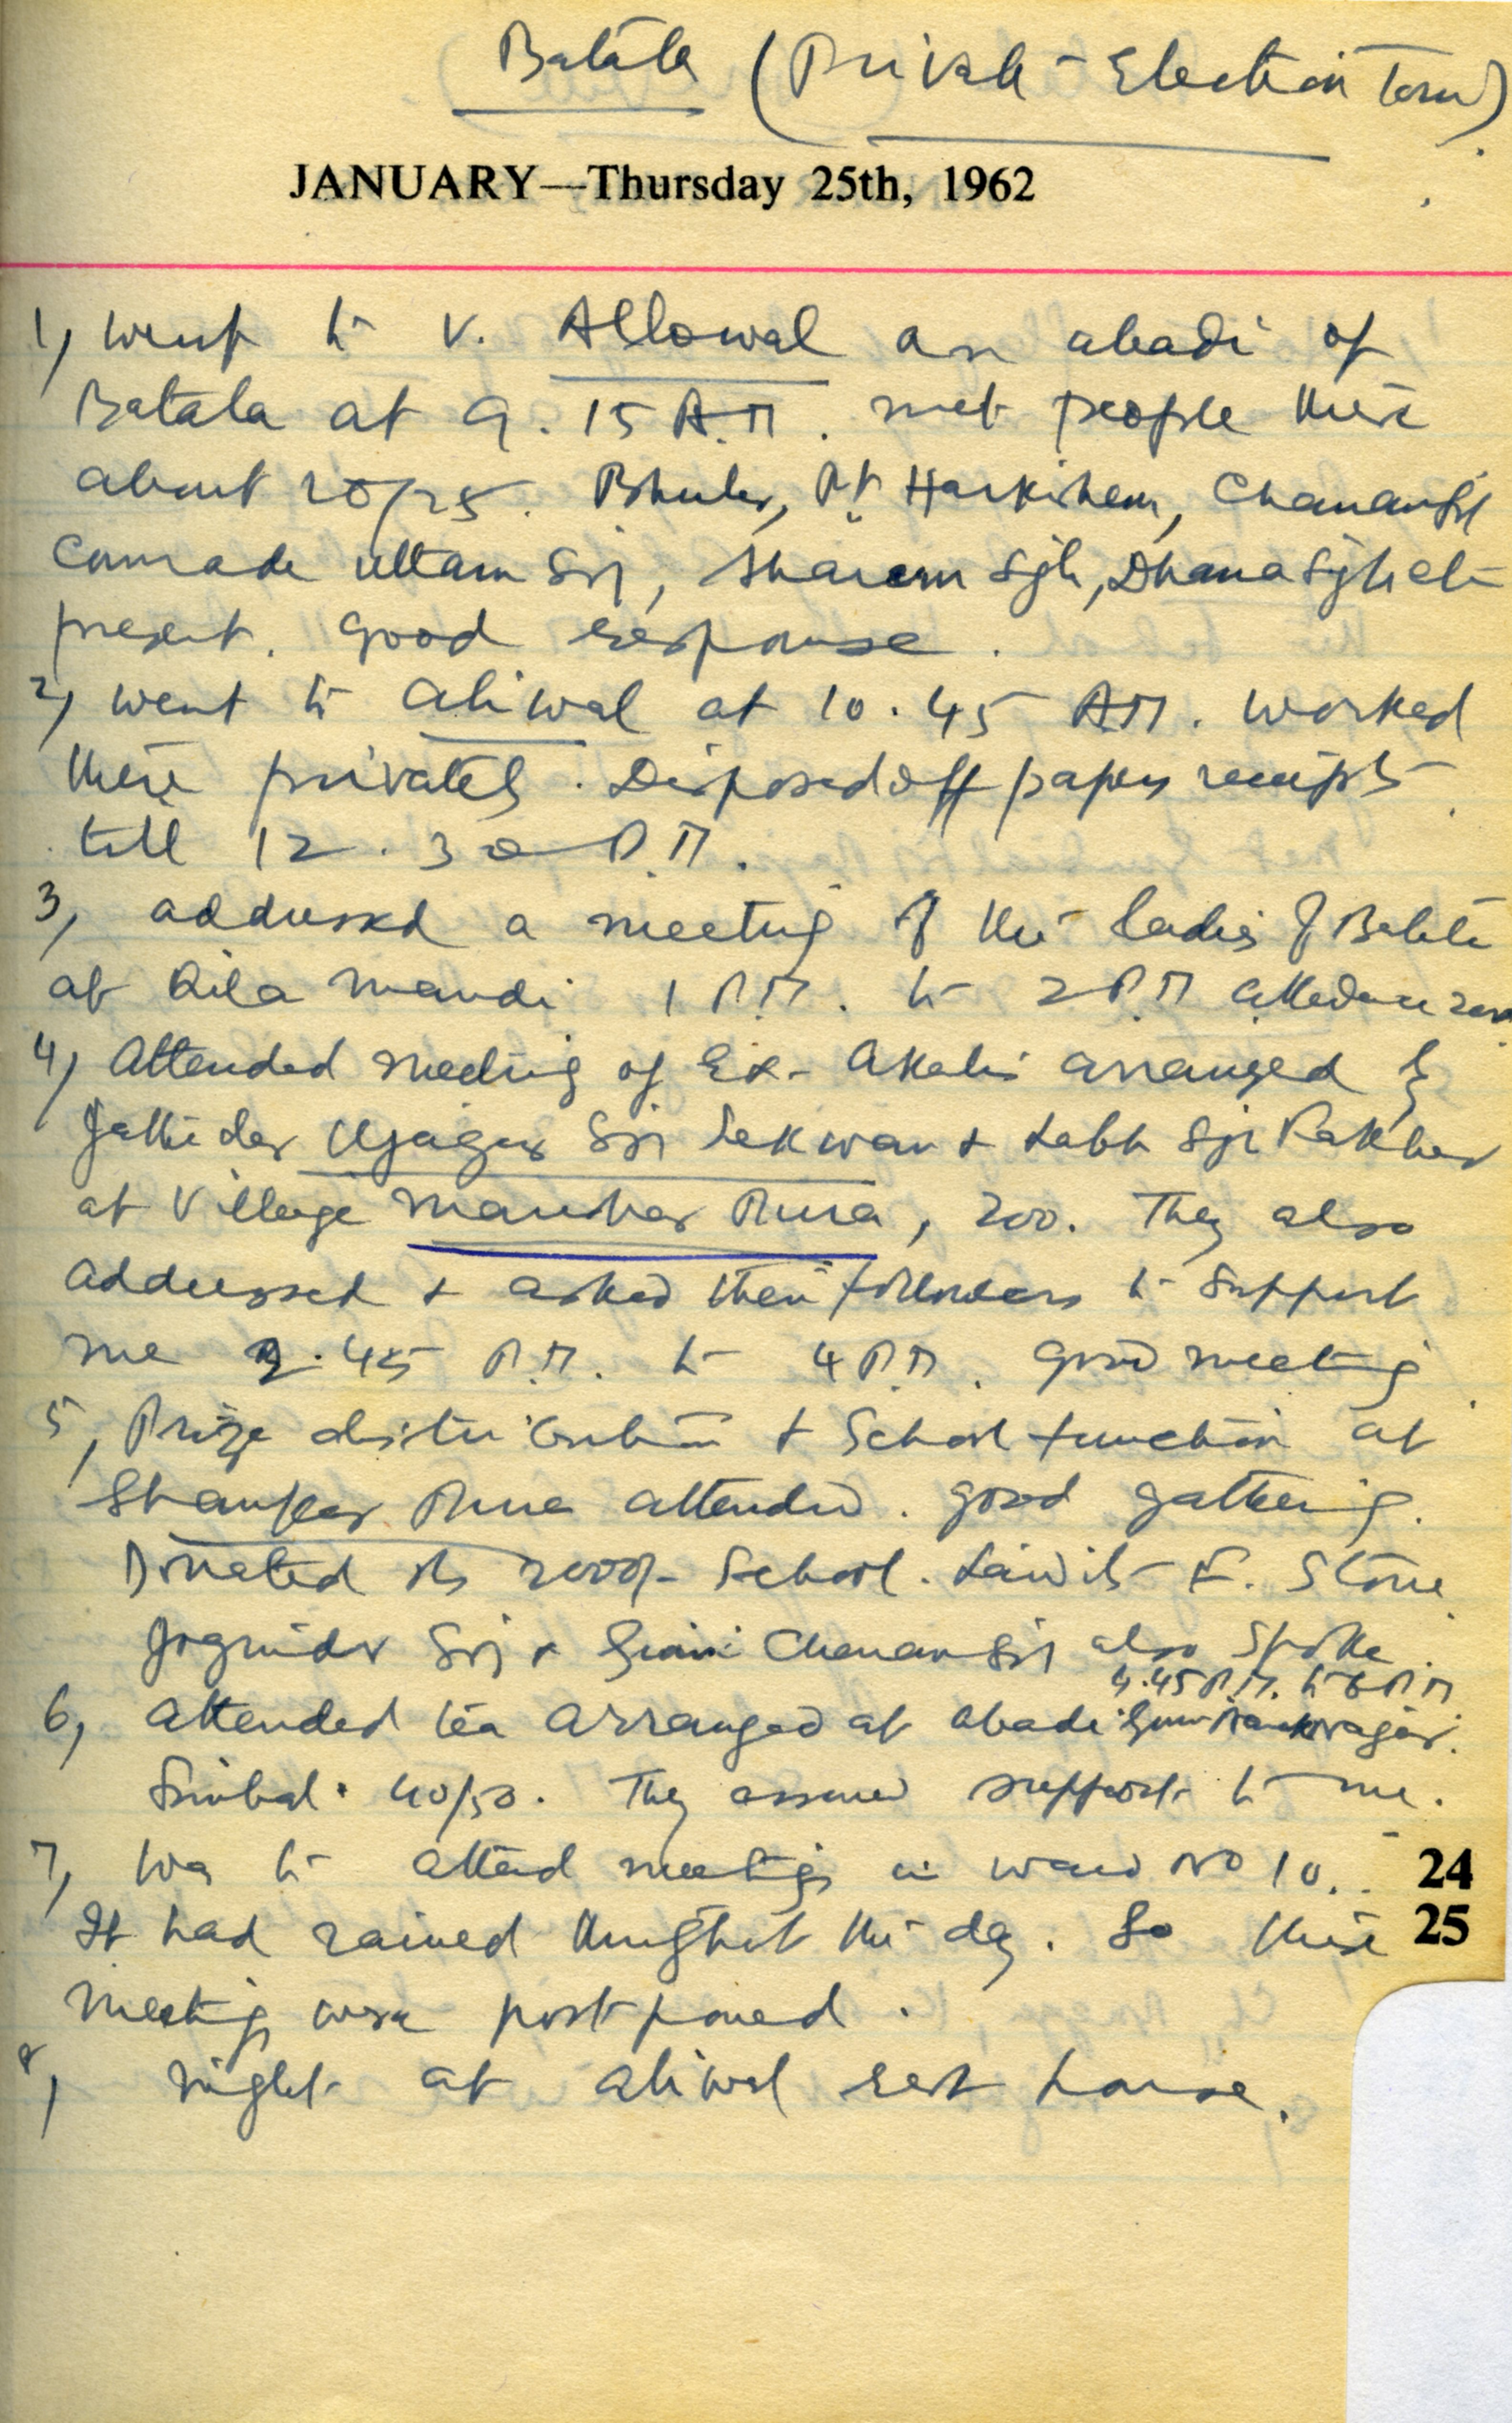 Batala (Private - Election Tour)
JANUARY—Thursday 25th, 1962
1, Went to V. Allowal an abadi of
Batala at 9.15 A.M. met people there
about 20/25. Pt Harkishen, Chanan
Comrade Uttam Sgh, Sgh, Dhana Sgh etc
present. Good response.
2, Went to Aliwal at 10.45 A.M. worked
there privately. Disposed off papers receipts
till 12.30 P.M.
3, addressed a meeting of the ladies of Batala
at Qila Mandi 1 P.M. to 2 P.M attendance
4, Attended meeting of Ex-Akalis arranged by
Jathedar Ujagar Sgh Sekwan & Labh Sgh
at Village Manohar Pura, 200. They also
addressed & asked their followers to support
me 2.45 P.M. to 4 P.M. good meeting
5, Prize distribution & School function at
Shanker Pura attended. good gathering.
Donated Rs School. F. Stone
Joginder Sgh & Giani Chanan Sgh also spoke.
4.45 P.M. to 6 P.M
6, Attended tea arranged at abadi Guru Nanak Nagar.
Simbal. 40/50. They assured support to me.
7, Was to attend meetings in ward No 10.
24
It had rained throughout the day. So these
25
meetings were postponed.
8, night at Aliwal rest house.